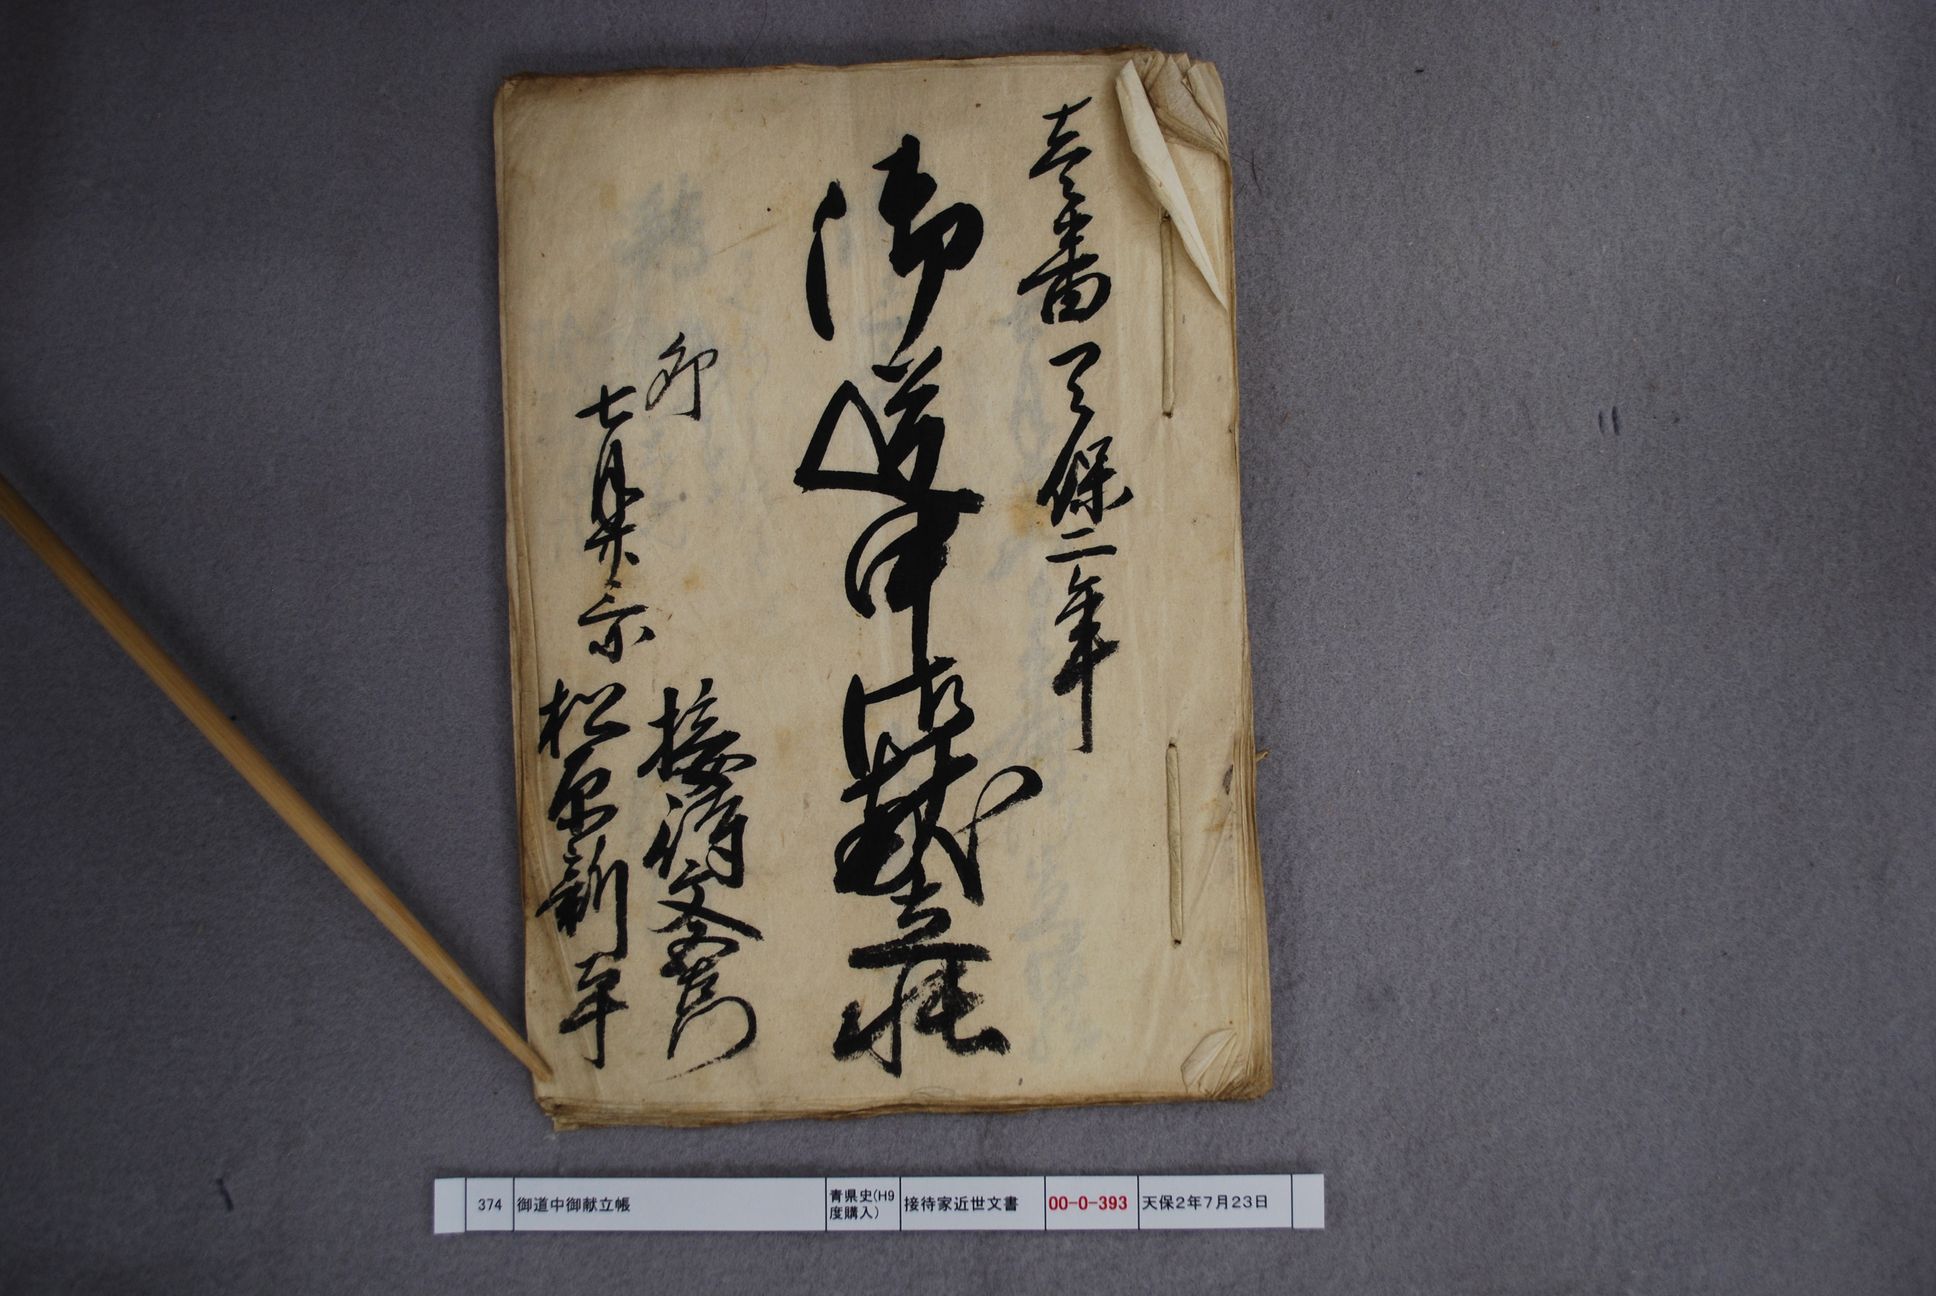 壱番 天保二年
御道中御献立帳
卯
七月廿六
接待文右衛門
松原新平
374
御道中御献立帳
青県史(H9
度購入)
接待家近世文書
00-0-393
天保2年7月23日